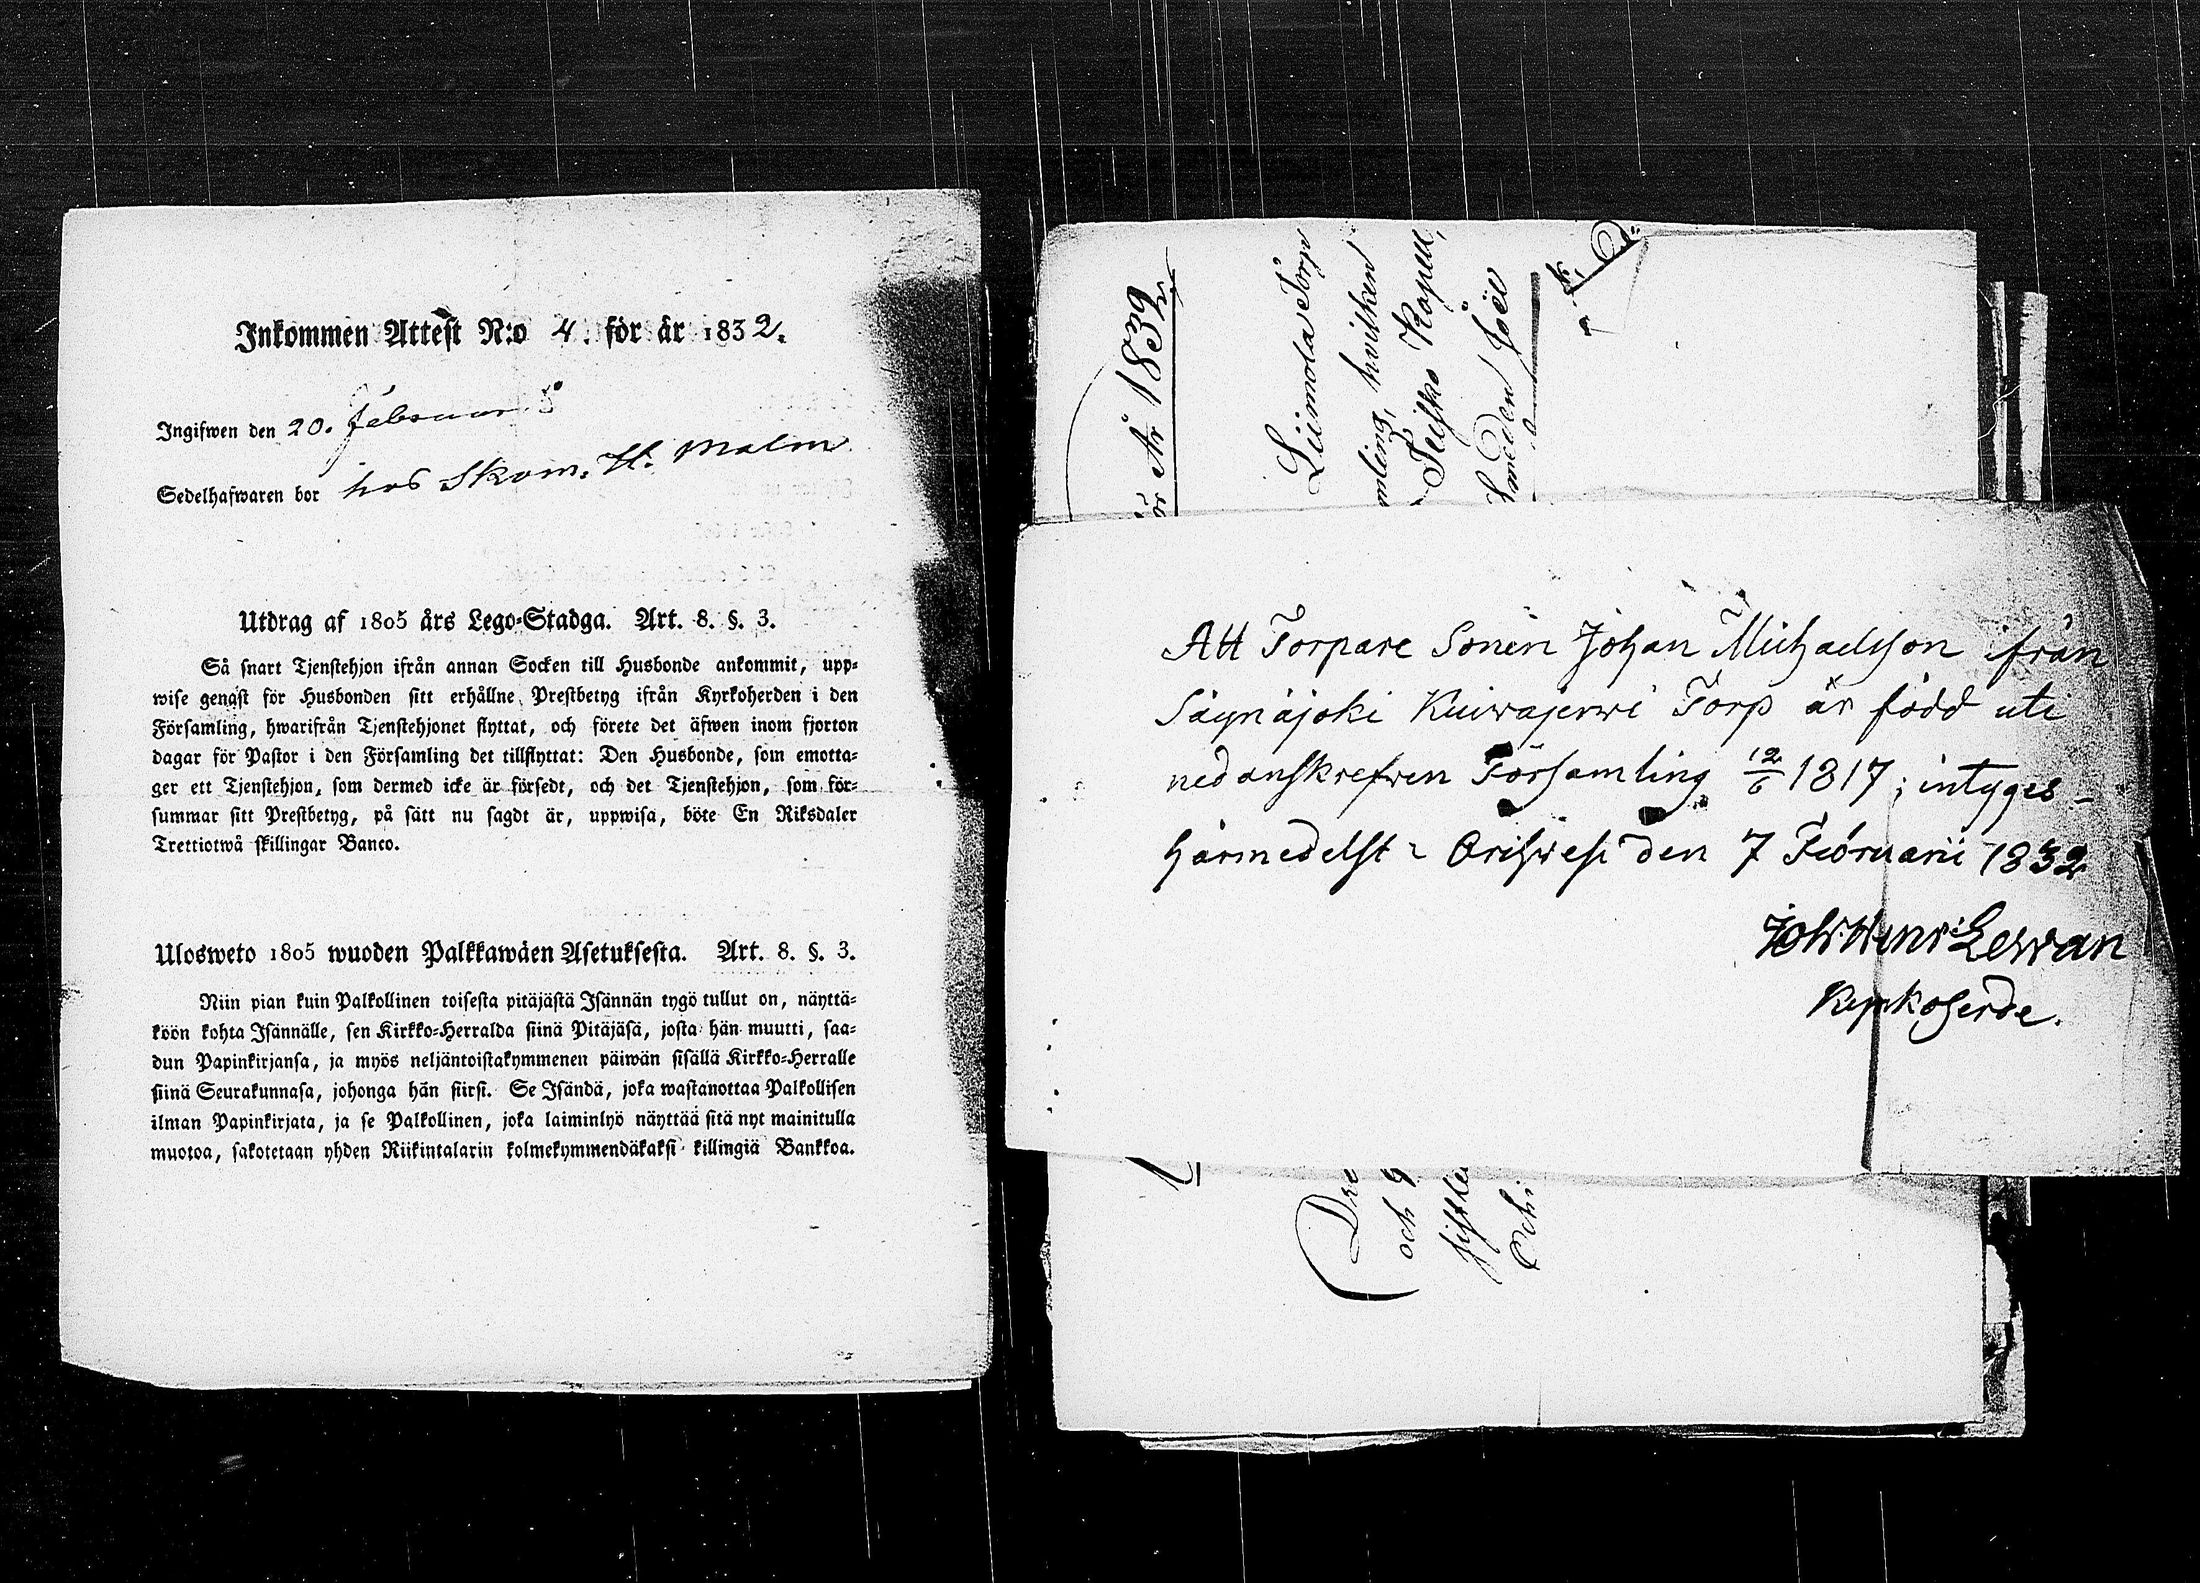 Inkommen Attest N:o 4. för år 1832.
Ingifwen den 20. Februar
Sedelhafwaren bor hos Skom. H. Malm
Utdrag af 1805 års Lego-Stadga. Art. 8. §. 3.
Så snart Tjenstehjon ifrån annan Socken till Husbonde ankommit, upp-
wise genast för Husbonden sitt erhållne Prestbetyg ifrån Kyrkoherden i den
Församling, hwarifrån Tjenstehjonet flyttat, och förete det äfwen inom fjorton
dagar för Pastor i den Församling det tillflyttat: Den Husbonde, som emotta-
ger ett Tjenstehjon, som dermed icke är försedt, och det Tjenstehjon, som för-
summar sitt Prestbetyg, på sätt nu sagdt är, uppwisa, böte En Riksdaler
Trettiotwå skillingar Banco.
Ulosweto 1805 wuoden Palkkawäen Asetuksesta. Art. 8. §. 3.
Niin pian kuin Palkollinen toisesta pitäjästä Isännän tygö tullut on, näyttä-
köön kohta Isännälle, sen Kirkko-Herralda siinä Pitäjäsä, josta hän muutti, saa-
dun Papinkirjansa, ja myös neljäntoistakymmenen päiwän sisällä Kirkko-Herralle
siinä Seurakunnasa, johonga hän siirsi. Se Isändä, joka wastanottaa Palkollisen
ilman Papinkirjata, ja se Palkollinen, joka laiminlyö näyttää sitä nyt mainitulla
muotoa, sakotetaan yhden Riikintalarin kolmekymmendäkaksi killingiä Bankkoa.
ör År 1832
Liimola Torp
mling, hvilken
Teisko Kapell,
Smeden Joël
Att Torpare Sonen Johan Michaelsson ifrån
Säynäjoki Kuiwajerwi Torp är född uti
nedanskrefwen Församling 12/6 1817; intyges
härmedelst: Orihwesi den 7 Februarii 1832
Joh. Henr: Lewan
Kyrkoherde.
och
Och